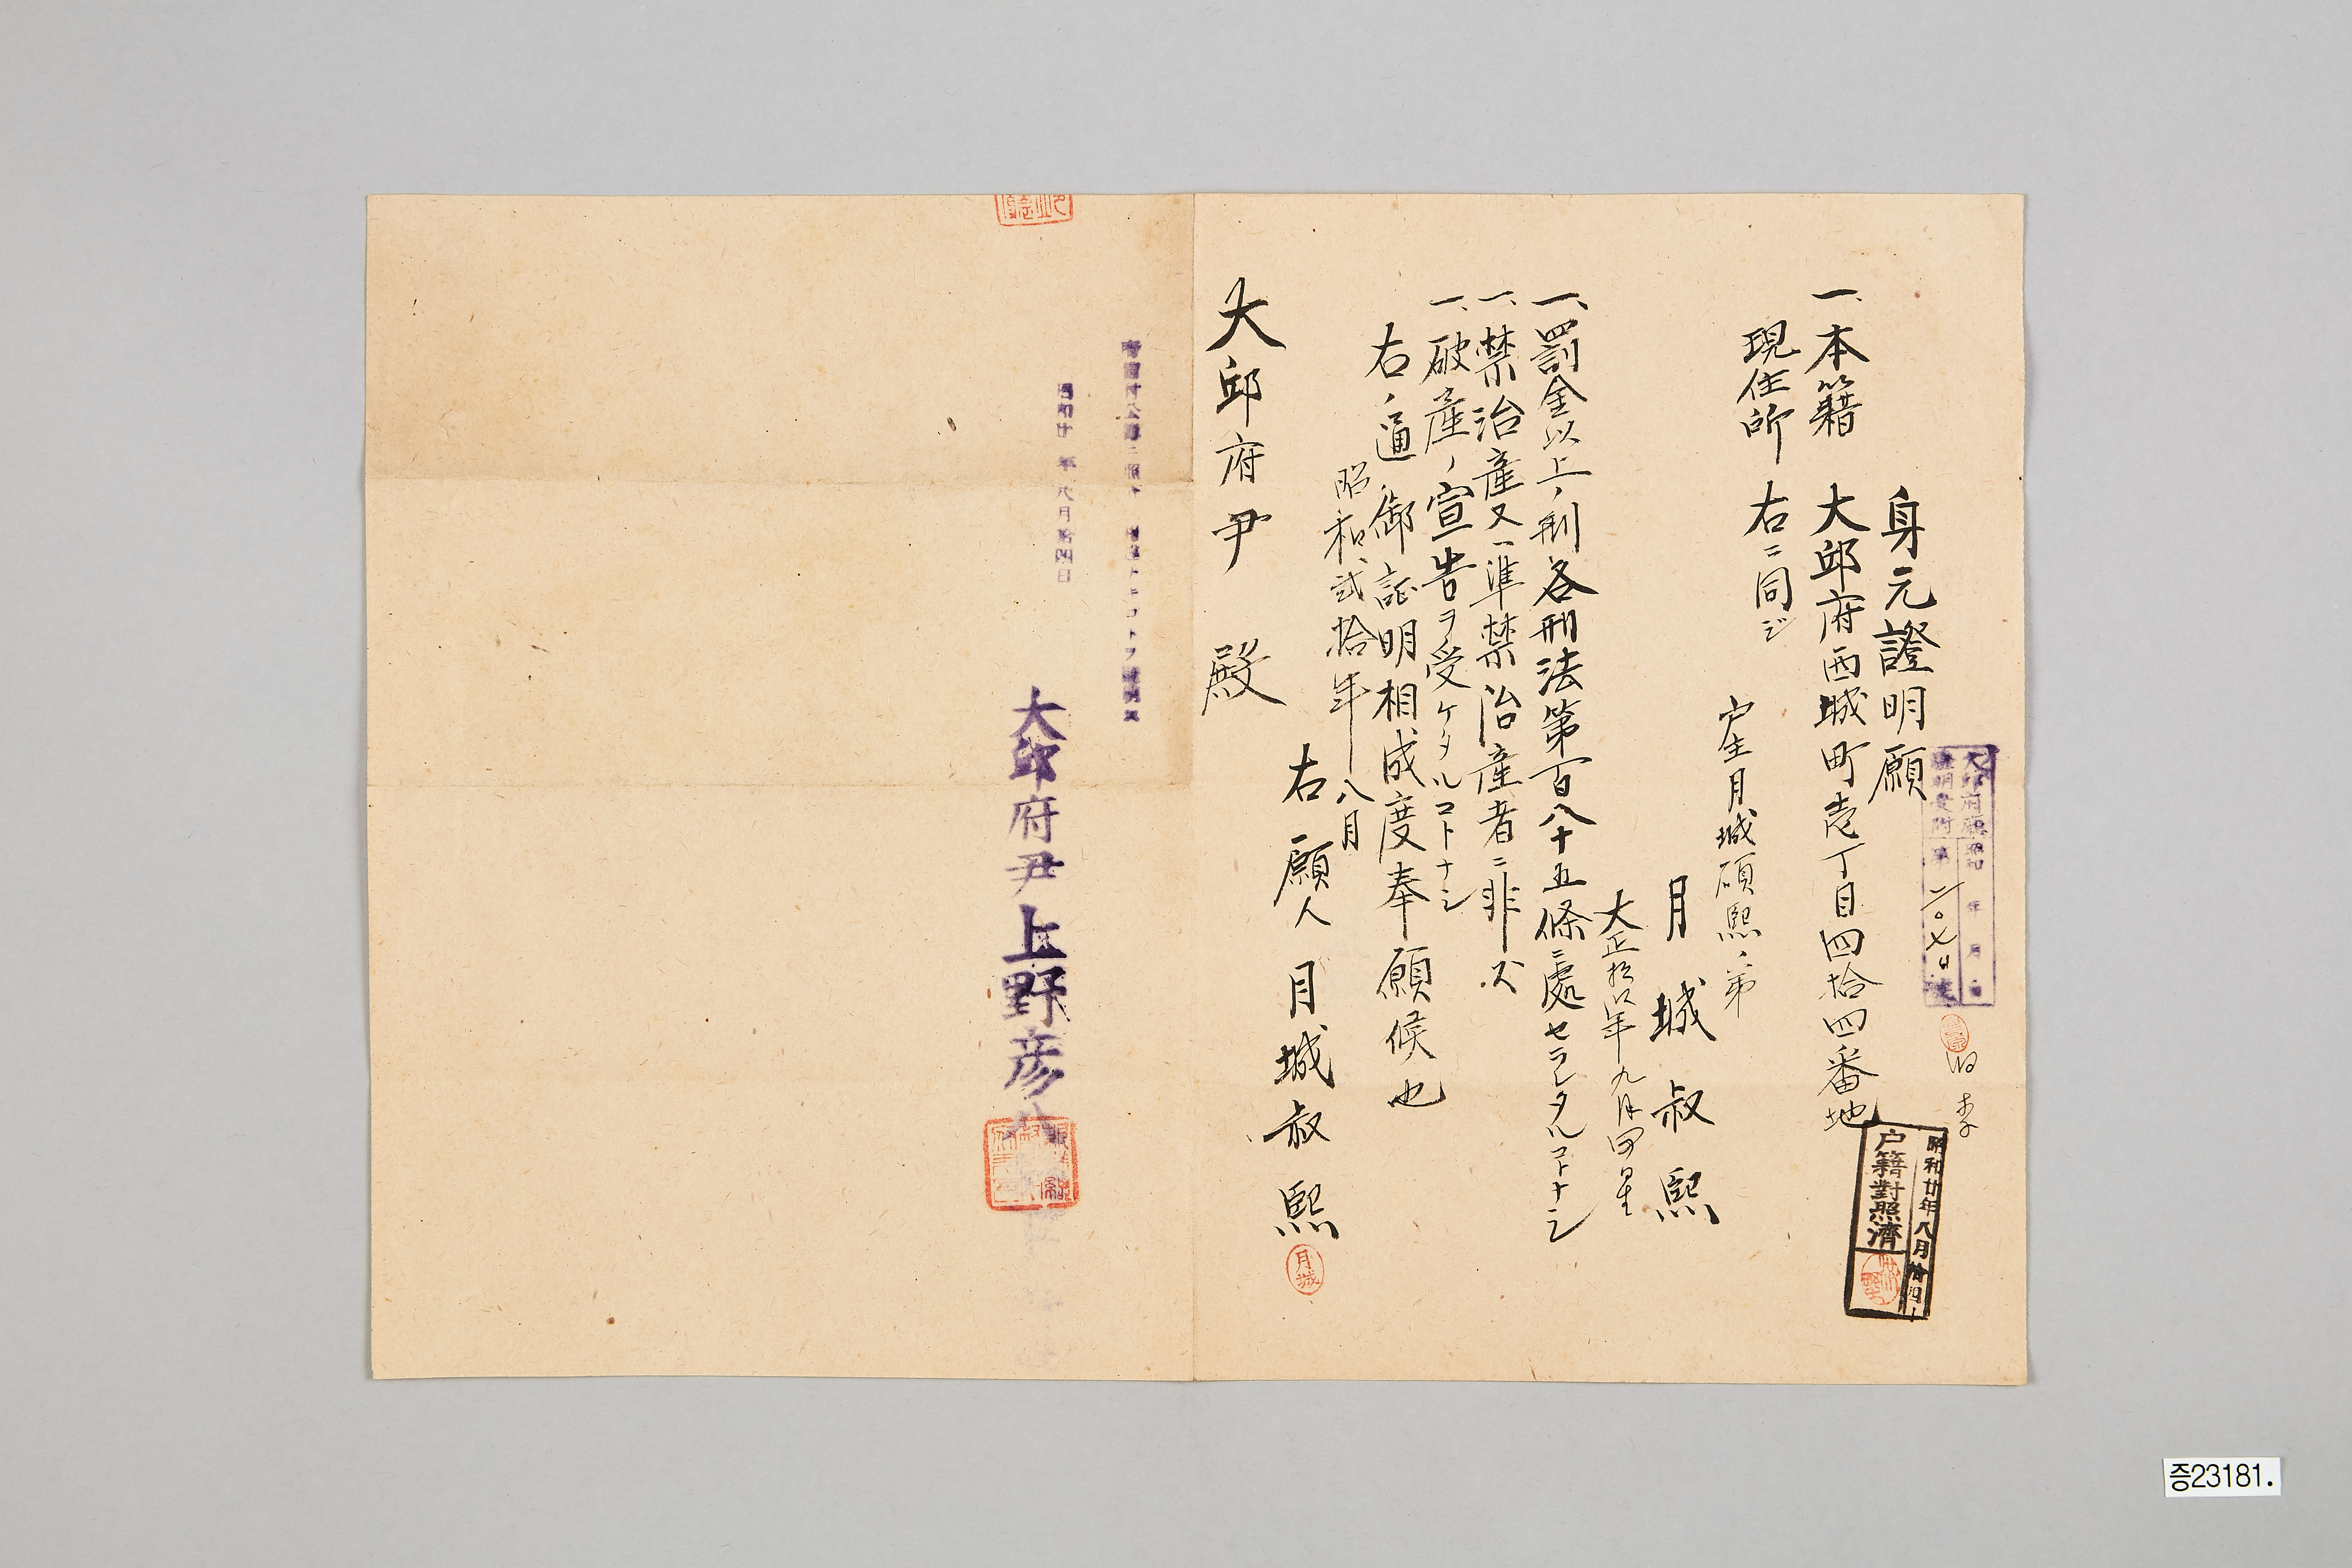 身元證明願
一、本籍 大邱府西城町壱丁目四拾四番地
現住所 右ニ同ジ
戸主月城碩熙ノ弟
月城叔熙
大正拾四年九月四日生
一、罰金以上ノ刑各刑法第百八十五條ニ處セラレタルコトナシ
一、禁治產又ハ準禁治產者ニ非ズ
一、破產ノ宣告ヲ受ケタルコトナシ
右ノ通御証明相成度奉願候也
昭和弐拾年八月
右願人 月城叔熙
月城
大邱府尹 殿
大邱府廳 昭和 年 月 日
證明受附 第
李
昭和廿年八月拾四
戸籍對照濟
昭和廿年八月拾四日
大邱府尹上野彦八
증23181.